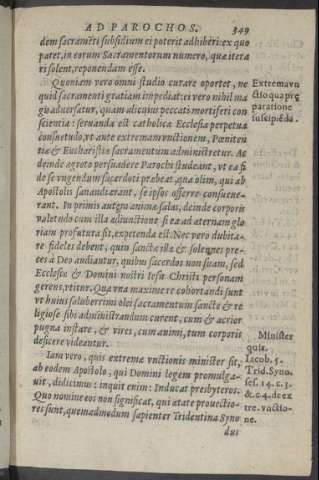 AD PAROCHOS. 349
dem sacramēti subsidium ei poterit adhiberi: ex quo
patet, in eorum Sacramentorum numero, quæ itera
ri solent, reponendam esse.
Quoniam vero omni studio curare oportet, ne
quid sacramenti gratiam impediat: ei vero nihil ma
gis aduersatur, quam alicuius peccati mortiferi con
scientia: seruanda est catholicæ Ecclesiæ perpetua
consuetudo, vt ante extremam vnctionem, Pœniten
tiæ & Eucharistiæ sacramentum administretur. Ac
deinde ægroto persuadere Parochi studeant, vt ea fi
de se vngendum sacerdoti præbeat, qua olim, qui ab
Apostolis sanandi erant, se ipsos offerre consueue-
rant. In primis autem animæ salus, deinde corporis
valetudo cum illa adiunctione si ea ad æternam glo
riam profutura sit, expetenda est. Nec vero dubita-
re fideles debent, quin sanctæ illæ & solennes pre-
ces a Deo audiantur, quibus sacerdos non suam, sed
Ecclesiæ & Domini nostri Iesu Christi personam
gerens, vtitur. Qua vna maxime re cohortandi sunt
vt huius saluberrimi olei sacramentum sancte & re
ligiose sibi administrandum curent, cum & acrior
pugna instare, & vires, cum animi, tum corporis
deficere videantur.
Iam vero, quis extremæ vnctionis minister sit,
ab eodem Apostolo, qui Domini legem promulga-
uit, didicimus: inquit enim: Inducat presbyteros.
Quo nomine eos non significat, qui ætate prouectio-
res sunt, quemadmodum sapienter Tridentina Syno
dus
Extrema vn
ctio qua prę
paratione
suscipiēda.
Minister
quis.
Iacob. 5.
Trid. Syno.
ses. 14. c. 3.
& c. 4. de ex
tre. vnctio-
ne.